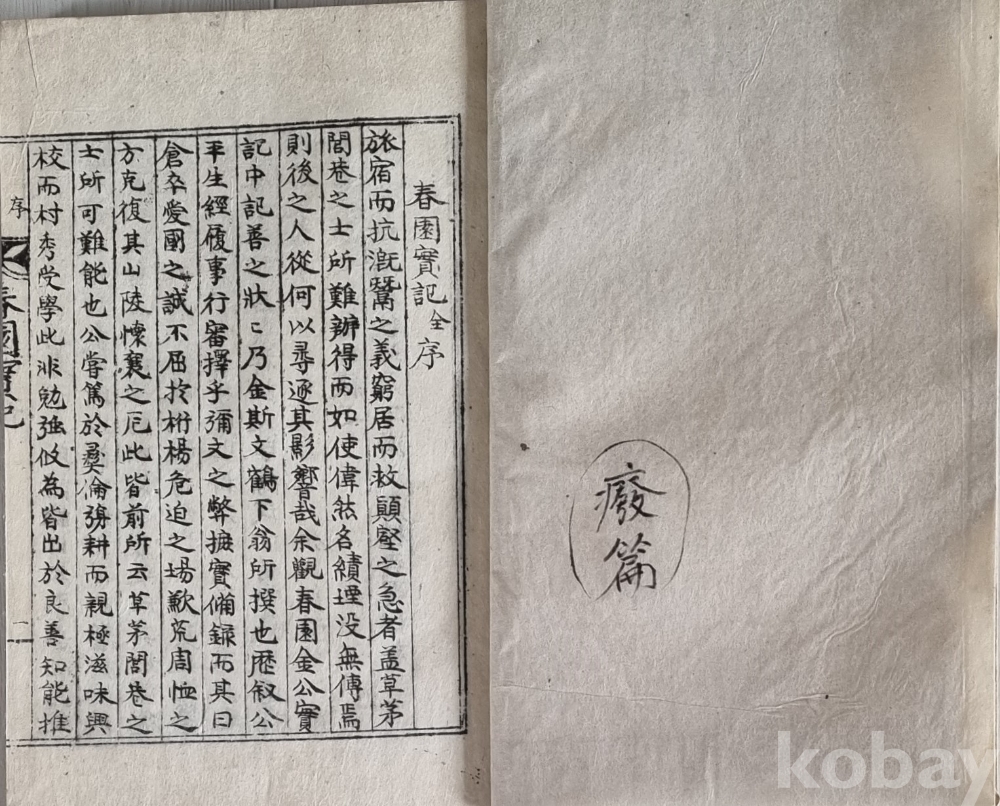 癈
篇
春園實記全序
旅宿而抗漑鬵之義窮居而救顚壑之急者盖草茅
閭巷之士所難辦得而如使偉然名績堙没無傳焉
則後之人從何以尋逐其影響哉余觀春園金公實
記中記善之狀〻乃金斯文鶴下翁所撰也歷敘公
平生經履事行審擇乎彌文之弊摭實備録而其曰
倉卒愛國之誠不屈於桁楊危迫之場歉荒周恤之
方克復其山陵懷襄之厄此皆前所云草茅閭巷之
士所可難能也公嘗篤於彛倫耕而親極滋味興
校而村秀受學此非勉强伎為皆出於良善知能推
序
春園實記
一
kobay